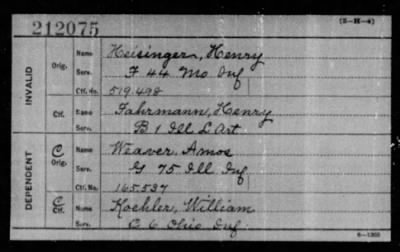 212075
(3-H-4)
INVALID
Orig.
Name Heisinger, Henry
Serv. F 44 Mo Inf
Ctf. No. 519.498
Ctf.
Name Fahrmann, Henry
Serv. B 1 Ill L Art
DEPENDENT
C. Orig.
Name Weaver, Amos
Serv. G 75 Ill Inf
Ctf. No. 165.537
C. Ctf.
Name Koehler, William
Serv. C 6 Ohio Inf.